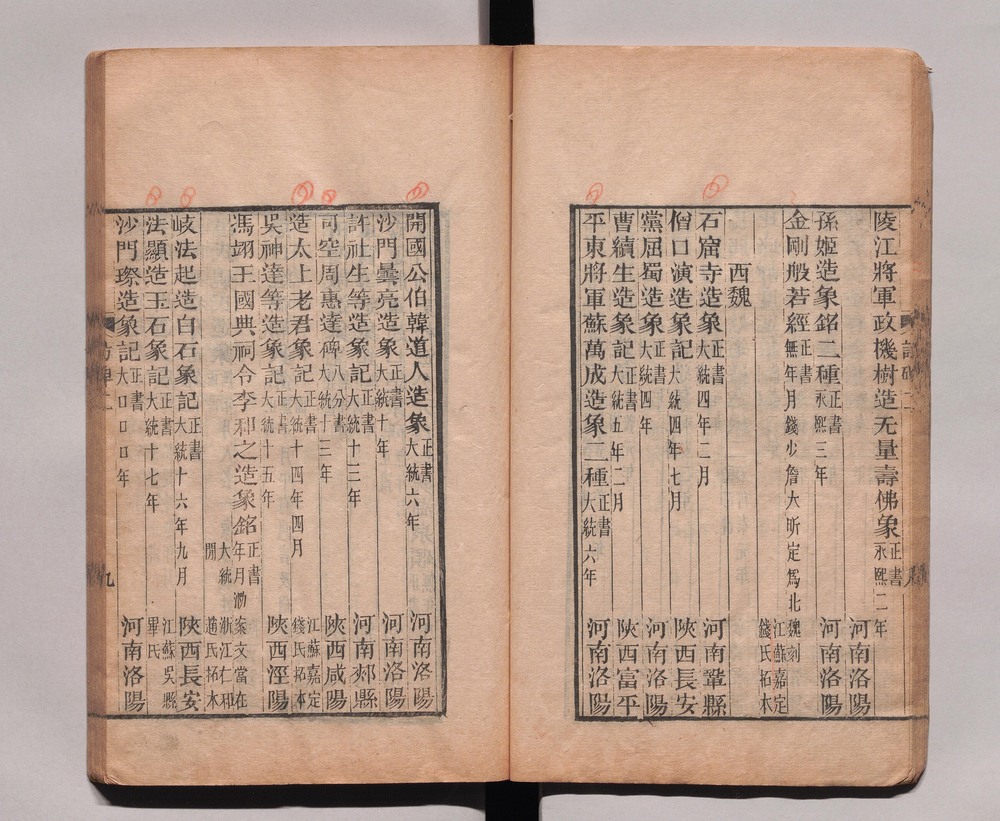 陵江將軍政機樹造无量壽佛象正書永熙二年
河南洛陽
孫姬造象銘二種正書永熙三年 河南洛陽
金剛般若經正書無年月錢少詹大昕定爲北魏刻
江蘇嘉定錢氏拓本
西魏
石窟寺造象正書大統四年二月 河南鞏縣
僧口演造象記正書大統四年七月 陝西長安
黨屈蜀造象正書大統四年 河南洛陽
曹續生造象記正書大統五年二月 陝西富平
平東將軍蘇萬成造象二種正書大統六年 河南洛陽
開國公伯韓道人造象正書大統六年 河南洛陽
沙門曇亮造象正書大統十年 河南洛陽
許社生等造象記正書大統十三年 河南郟縣
司空周惠達碑八分書大統十三年 陝西咸陽
造太上老君象記正書大統十四年四月 江蘇嘉定錢氏拓本
吳神達等造象記正書大統十五年 陝西涇陽
馮翊王國典祠令李和之造象銘正書年月泐案文當在
大統閒 浙江仁和趙氏拓本
岐法起造白石象記正書大統十六年九月 陝西長安
法顯造玉石象記正書大統十七年 江蘇吳縣畢氏
沙門璨造象記正書大口口口年 河南洛陽
訪碑二
九